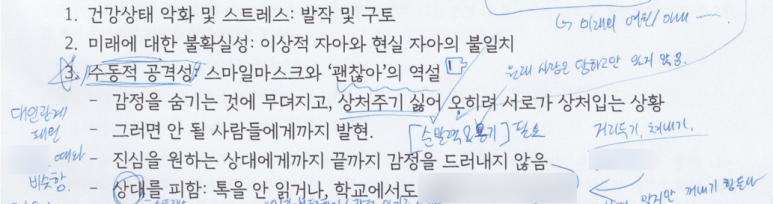 1. 건강상태 악화 및 스트레스: 발작 및 구토
↳ 미래의 여친/아내 ―
2. 미래에 대한 불확실성: 이상적 자아와 현실 자아의 불일치
3. 수동적 공격성: 스마일마스크와 '괜찮아'의 역설
원래 사람은 당하고만 있지 않음.
- 감정을 숨기는 것에 무뎌지고, 상처주기 싫어 오히려 서로가 상처입는 상황
대인관계
- 그러면 안 될 사람들에게까지 발현.
[순발력&용기] 필요
거리두기, 쳐내기.
- 진심을 원하는 상대에게까지 끝까지 감정을 드러내지 않음
비슷함.
- 상대를 피함: 톡을 안 읽거나, 학교에서도
꺼내기 힘들다